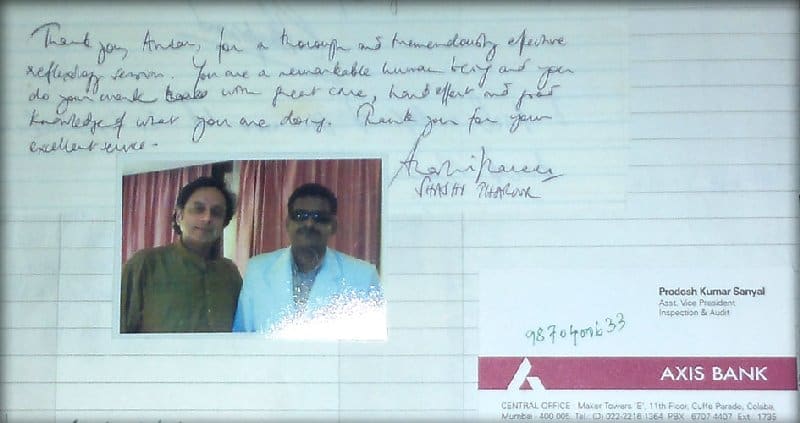 Thank you, Ansar, for a thorough and tremendously effective
reflexology session. You are a remarkable human being and you
do your work with great care, hard effort and good
knowledge of what you are doing. Thank you for your
excellent service.
SHASHI THAROOR
Pradosh Kumar Sanyal
Asst. Vice President
Inspection & Audit
AXIS BANK
CENTRAL OFFICE : Maker Towers 'E', 11th Floor, Cuffe Parade, Colaba,
Mumbai 400 005. Tel.: (022-2218 1364 PBX 6707-4407 Ext.: 1735